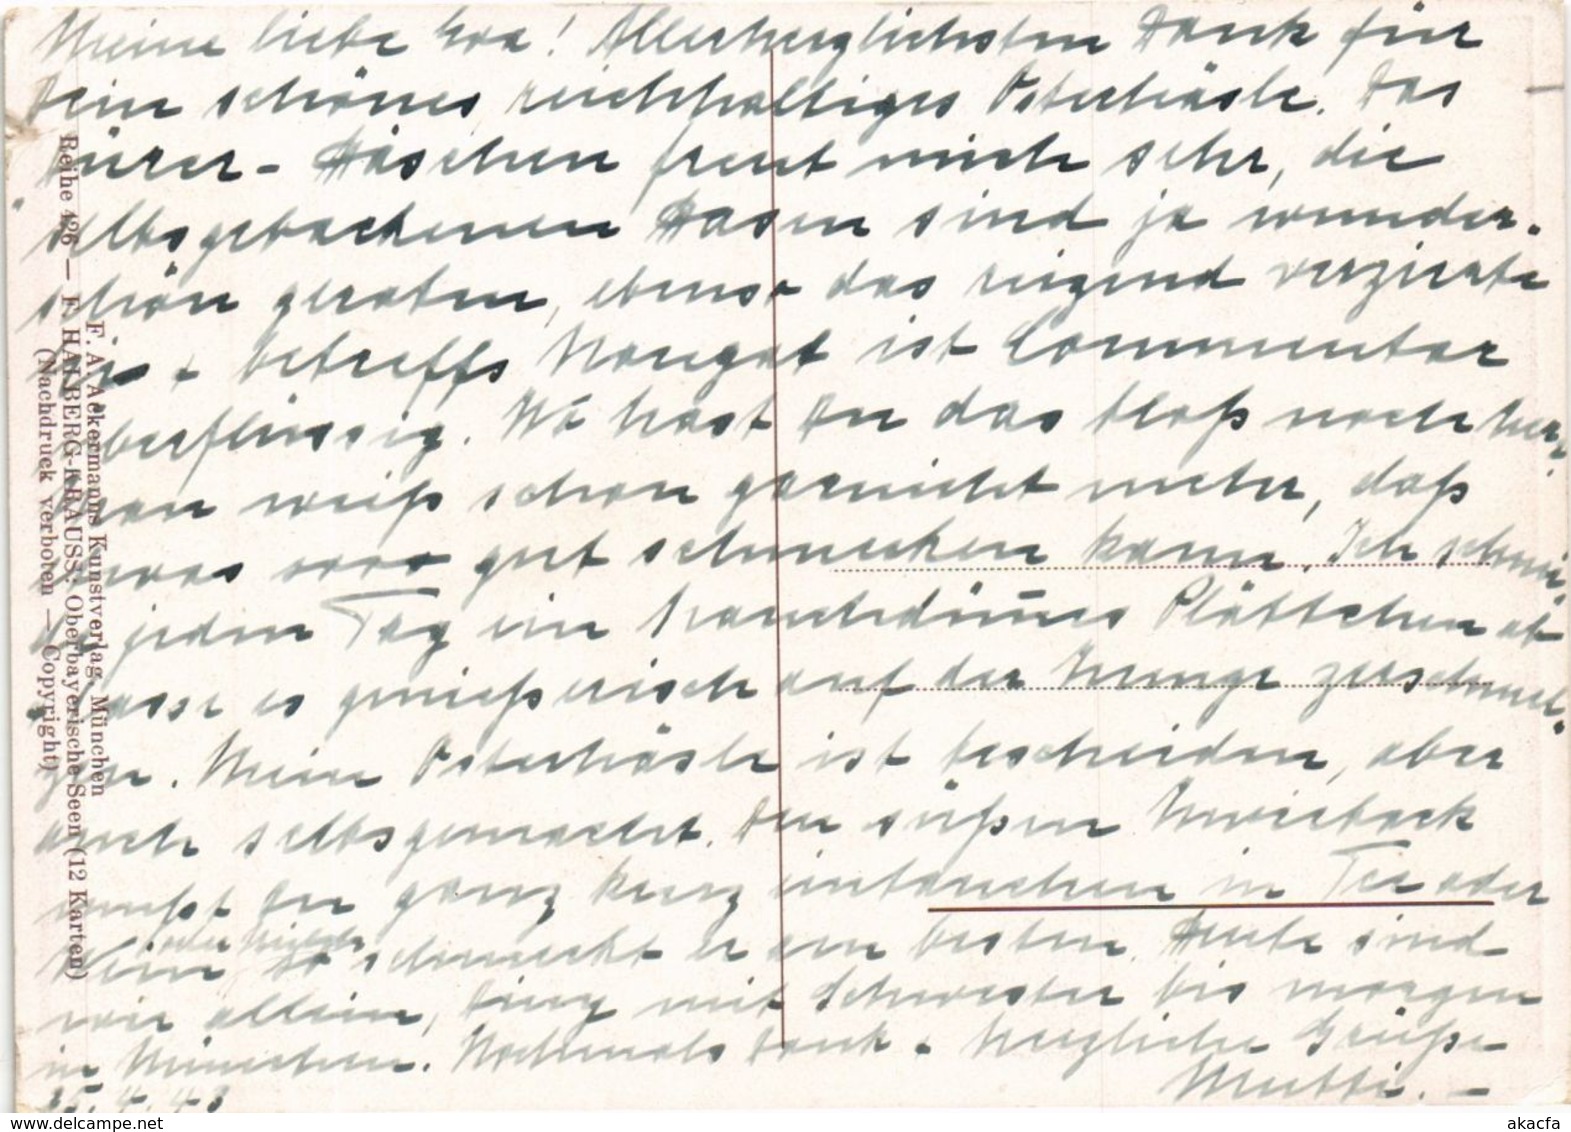 Meine liebe Eva! Allerherzlichsten Dank für
Dein schönes, reichhaltiges Osterhäsle. Das
Dürer-Häschen freut mich sehr, die
selbsgebackenen Hasen sind ja wunder-
schön geraten, ebenso das reizend verzierte
betreffs Nougat ist Commentar
überflüssig. Wo hast Du das bloß noch her,
man weiß schon garnicht mehr, daß
was soo gut schmecken kann. Ich schnei-
de jeden Tag ein hauchdünnes Plättchen ab
lasse es genießerisch auf der Zunge zerschmel-
zen. Mein Osterhäsle ist bescheiden, aber
auch selbsgemacht. Den süßen Zwieback
mußt Du ganz kurz eintauchen in Tee oder
oder Milch
Wein so schmeckt er am besten. Heute sind
wir allein, mit Schwester bis morgen
in München. Nochmals Dank + herzliche Grüße
Mutti. –
25.4.43
Reihe 426 — F. HALBERG-KRAUSS: Oberbayerische Seen (12 Karten)
F. A. Ackermanns Kunstverlag, München
(Nachdruck verboten — Copyright)
delcampe.net
akacfa